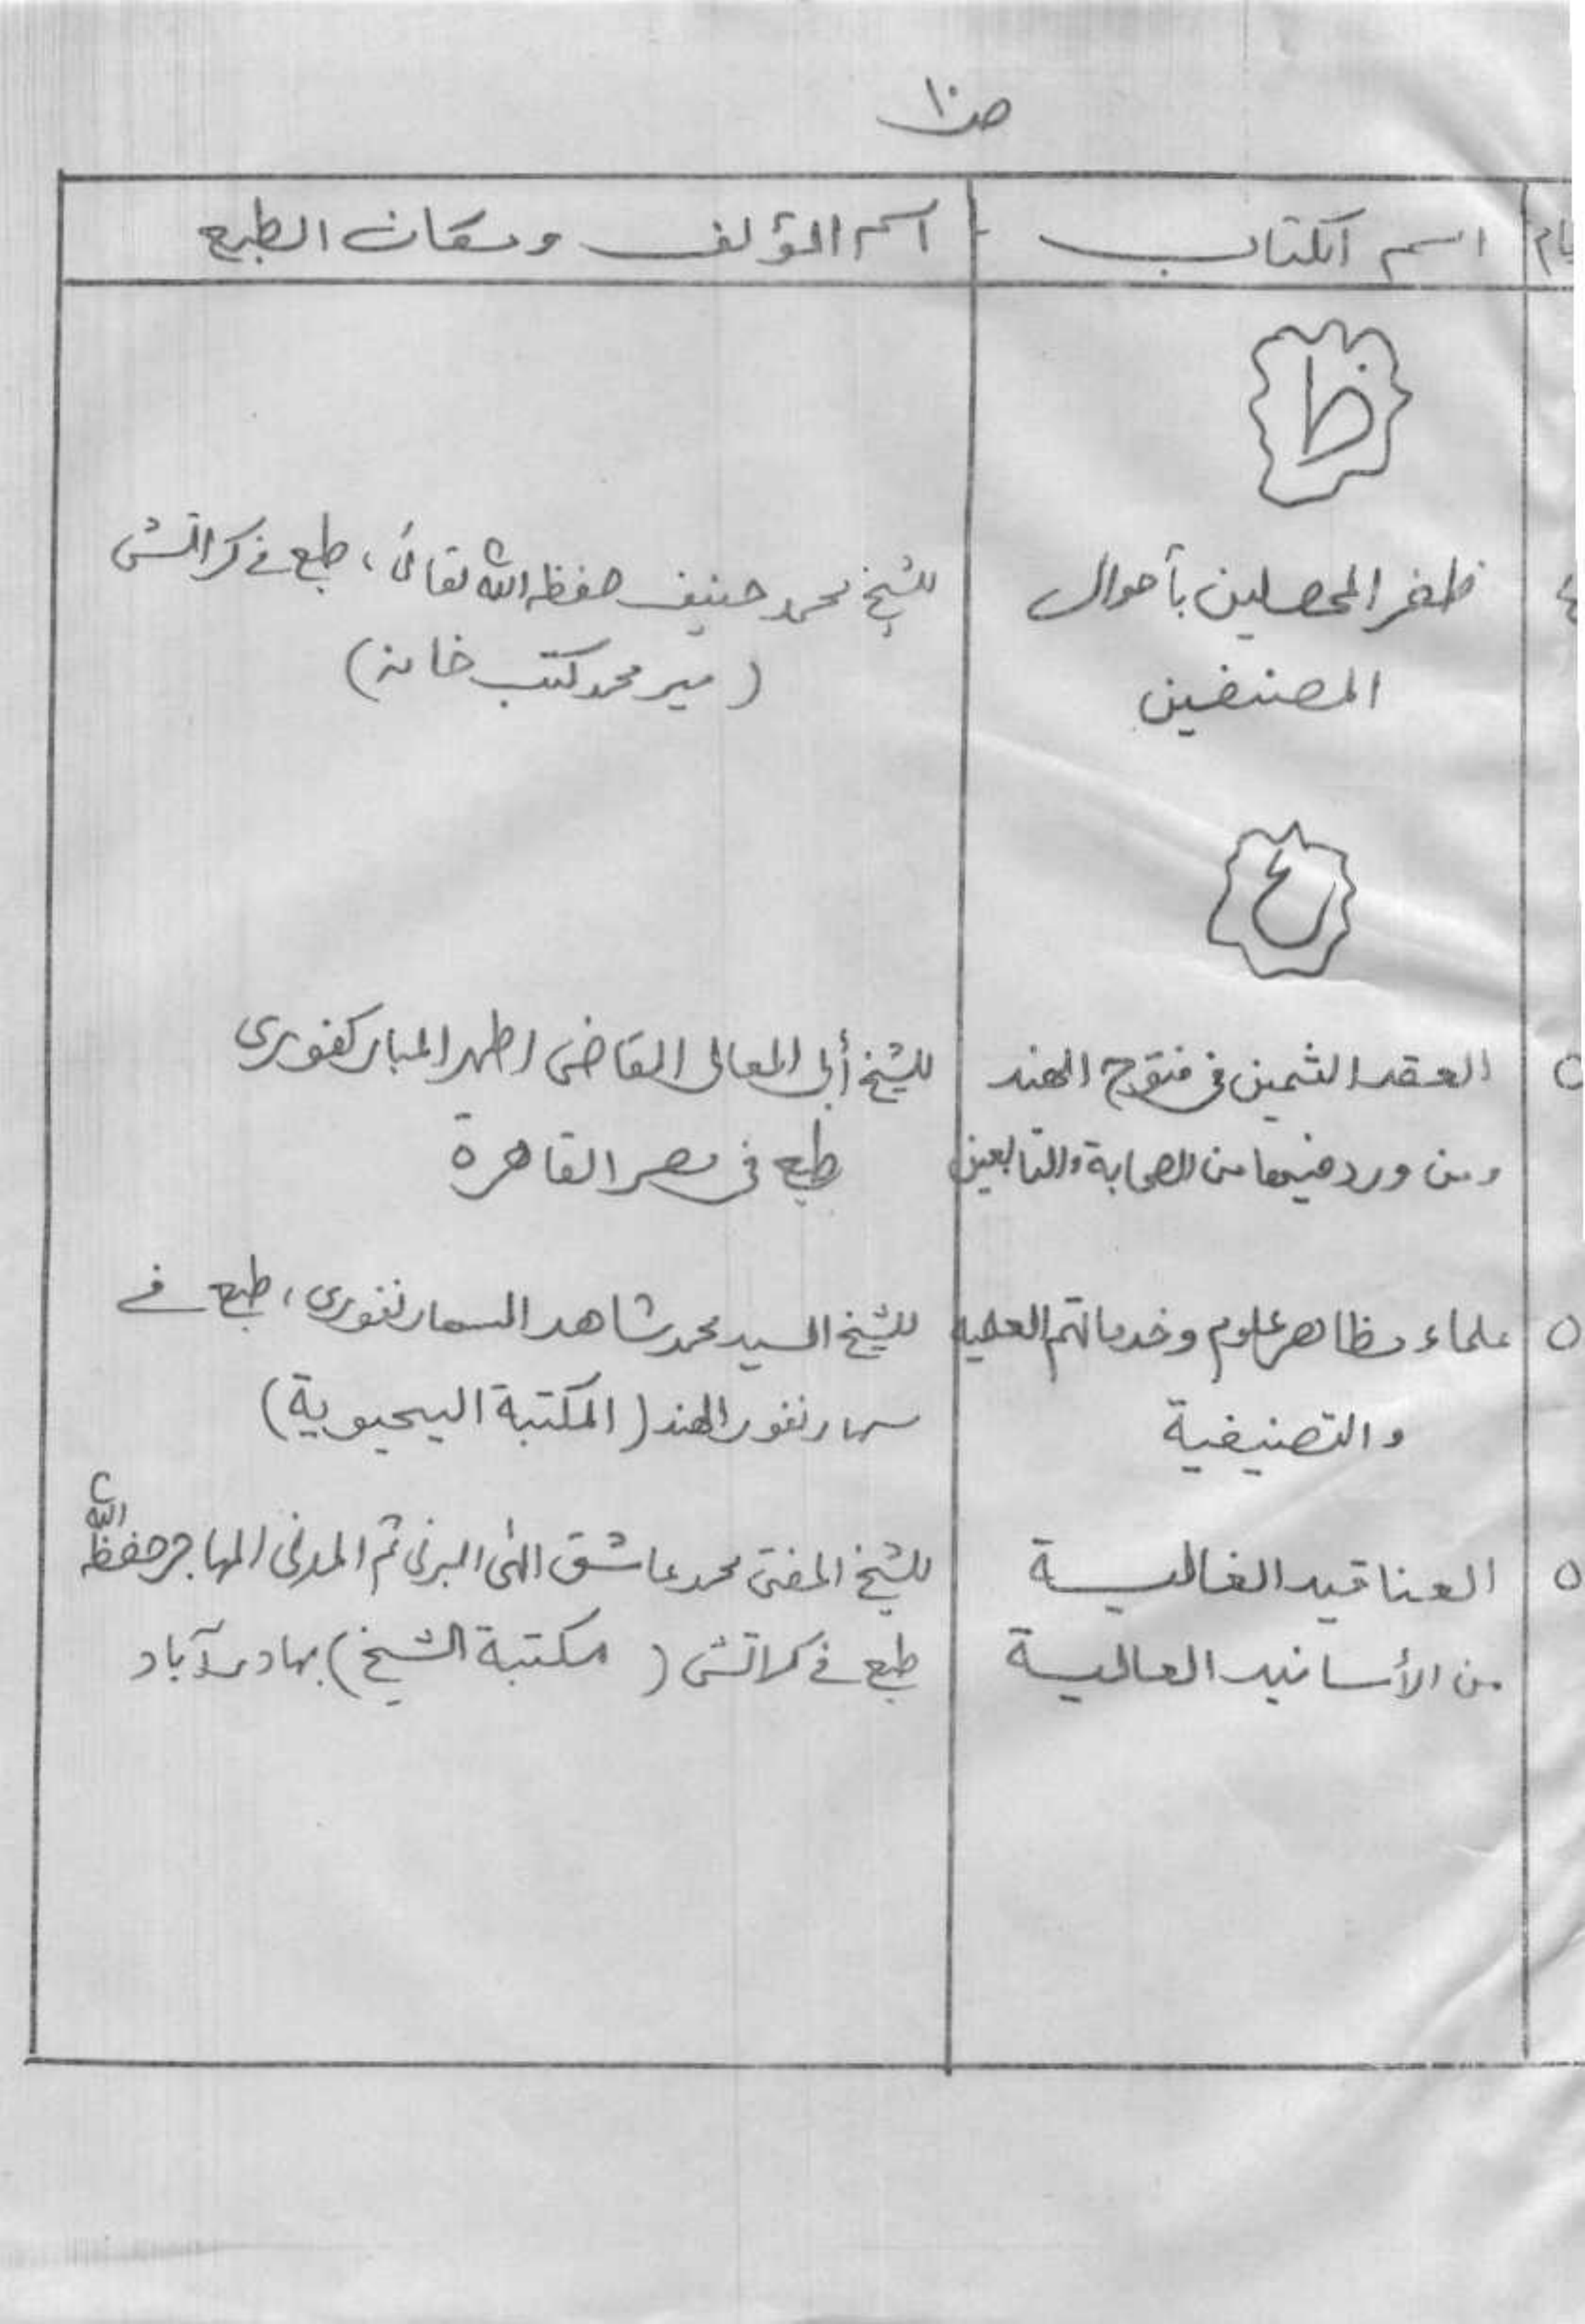 ص ١٠
اسم الكتاب
اسم المؤلف ومكان الطبع
ظ
ظفر المحصلين بأحوال
المصنفين
للشيخ محمد حنيف حفظه الله تعالى، طبع في كراتشى
(مير محمد كتب خانه)
ع
العقد الثمين في فتوح الهند
ومن ورد فيها من الصحابة والتابعين
للشيخ أبى المعالى القاضى اطهر المباركفورى
طبع في مصر القاهرة
علماء مظاهر علوم وخدماتهم العلمية
والتصنيفية
للشيخ السيد محمد شاهد السهارنفورى، طبع في
سهارنفور الهند (المكتبة اليحيوية)
العناقيد الغالية
من الأسانيد العالية
للشيخ المفتى محمد عاشق الهى البرنى ثم المدنى المهاجر حفظه الله
طبع في كراتشى (مكتبة الشيخ) بهادر آباد